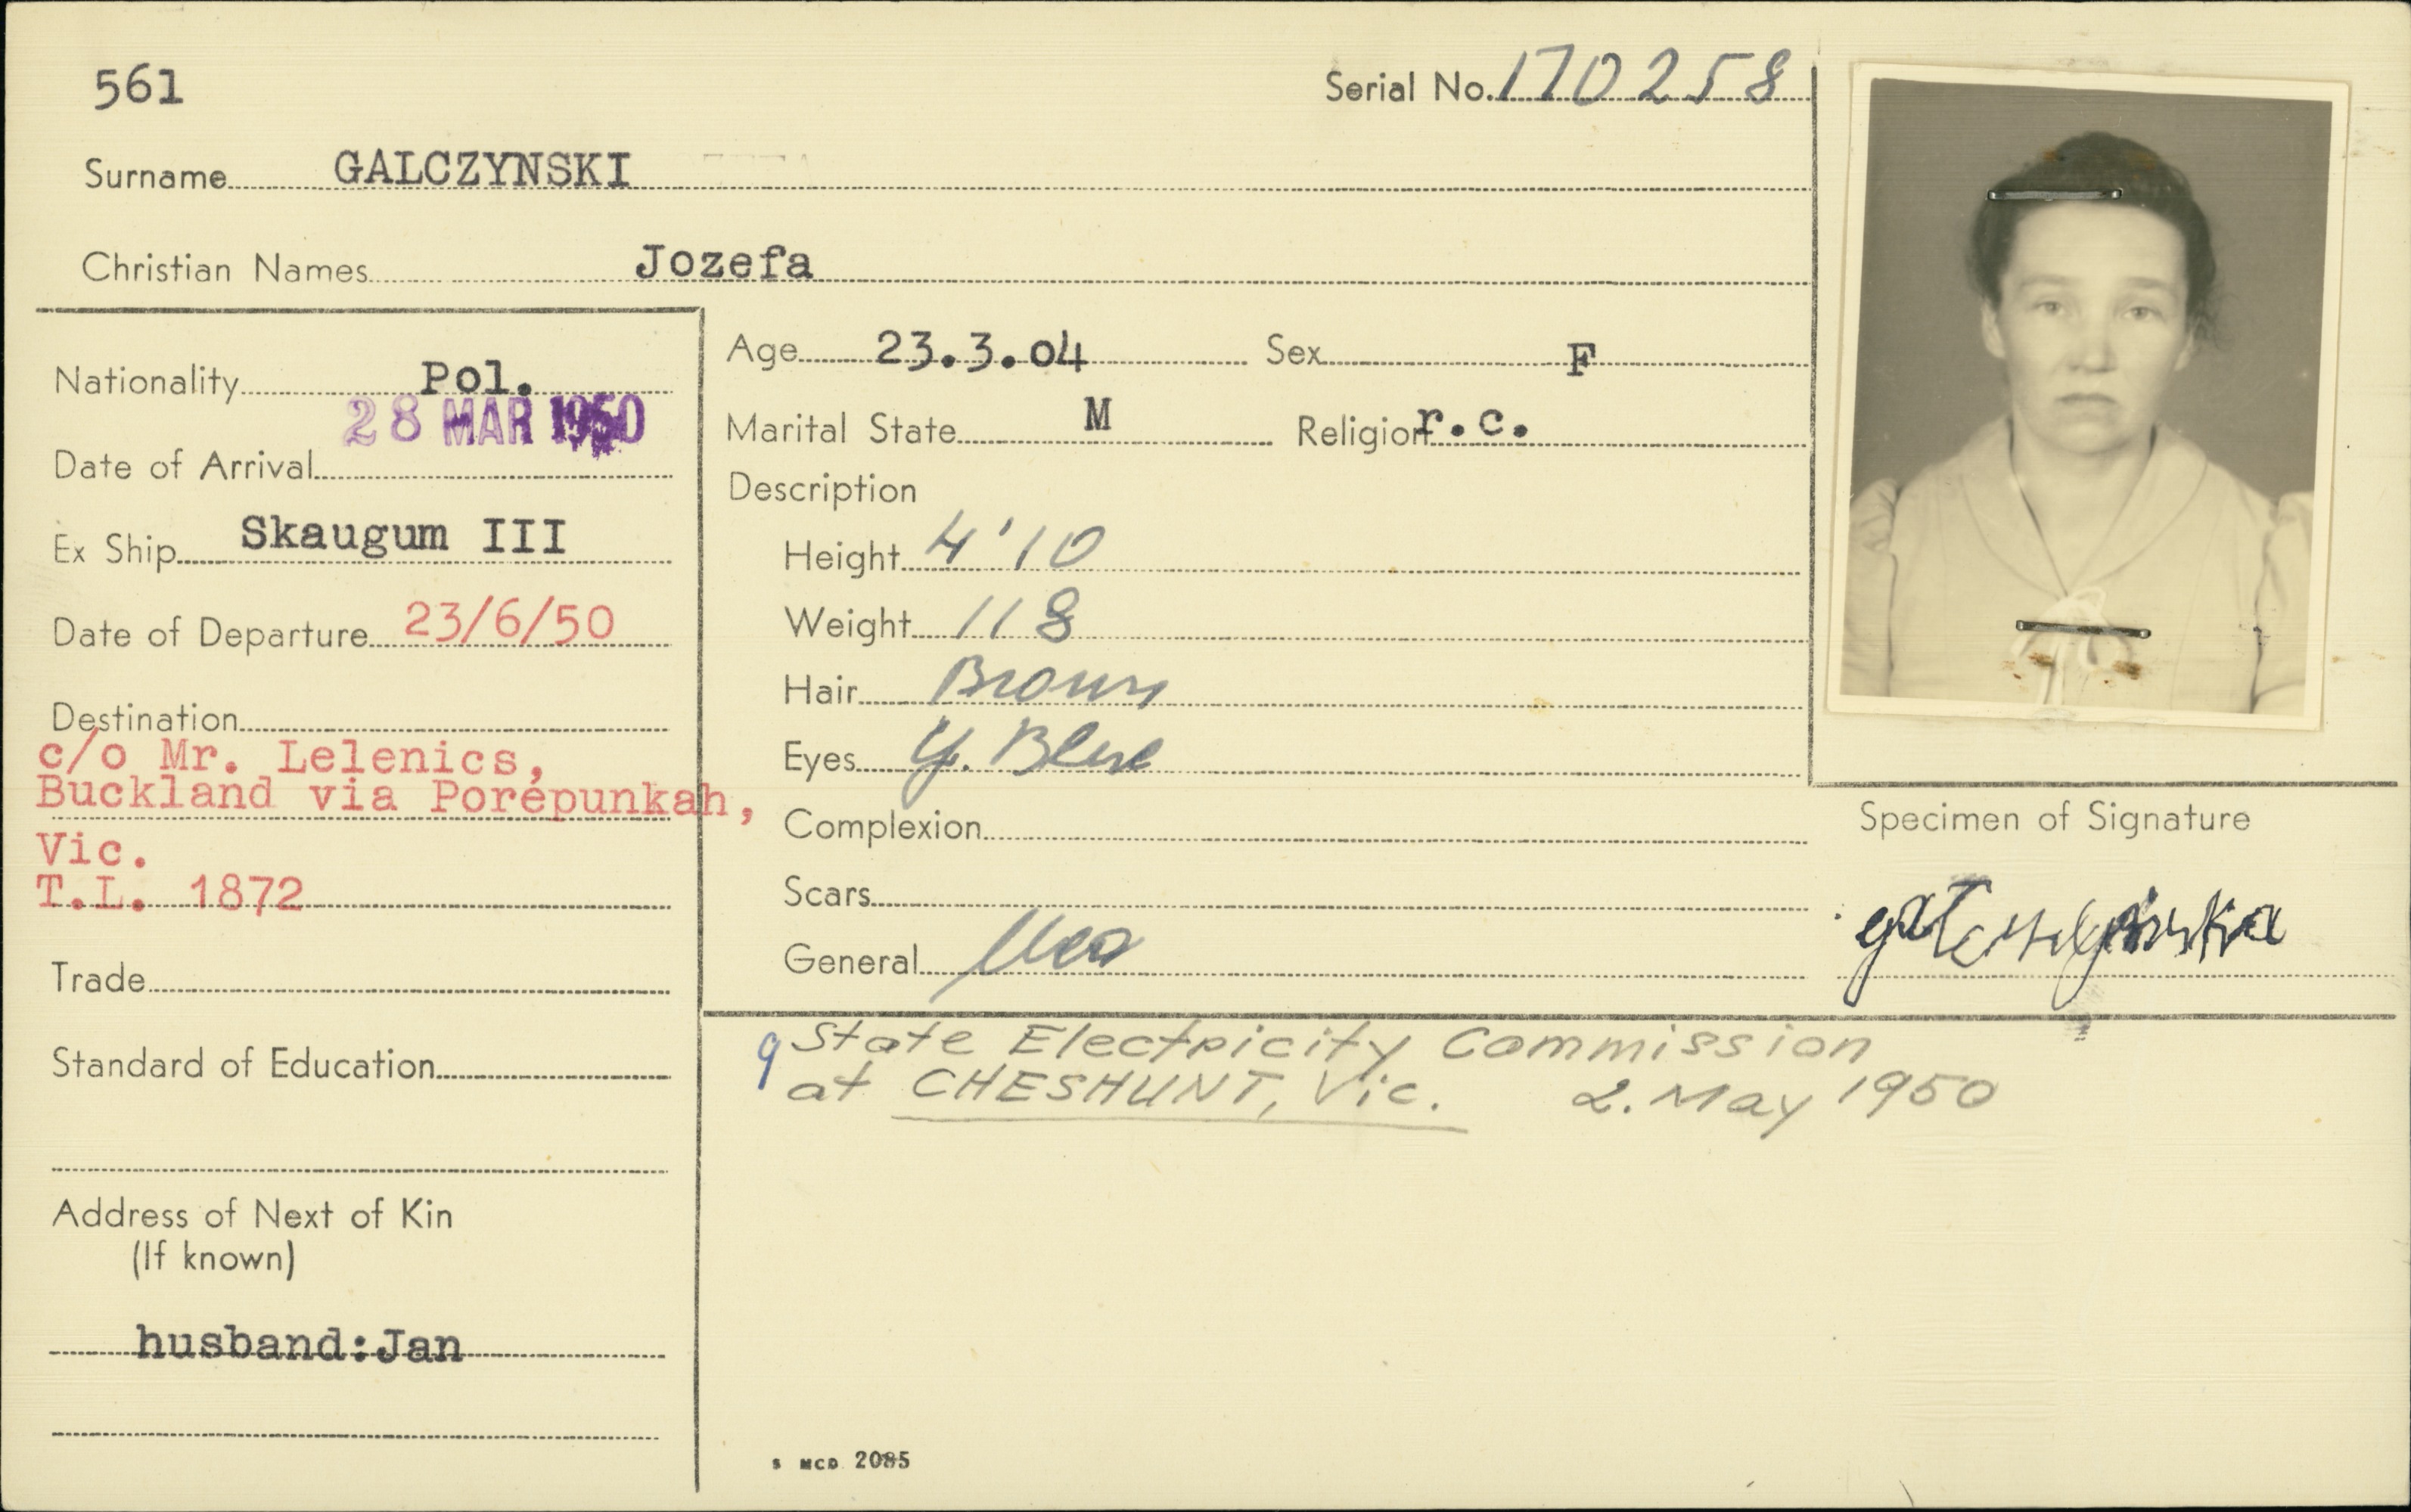 561
Serial No. 170258
Surname GALCZYNSKI
Christian Names Jozefa
Nationality Pol.
Date of Arrival 28 MAR 1950
Ex Ship Skaugum III
Date of Departure 23/6/50
Destination
c/o Mr. Lelenics,
Buckland via Porepunkah,
Vic.
T.L. 1872
Trade
Standard of Education
Address of Next of Kin
(If known)
husband:Jan
Age 23.3.04 Sex F
Marital State M Religion r.c.
Description
Height 4'10
Weight 118
Hair Brown
Eyes y. Blue
Complexion
Scars
General
Specimen of Signature
State Electricity Commission
at CHESHUNT, Vic. 2. May 1950
S MCD 2085